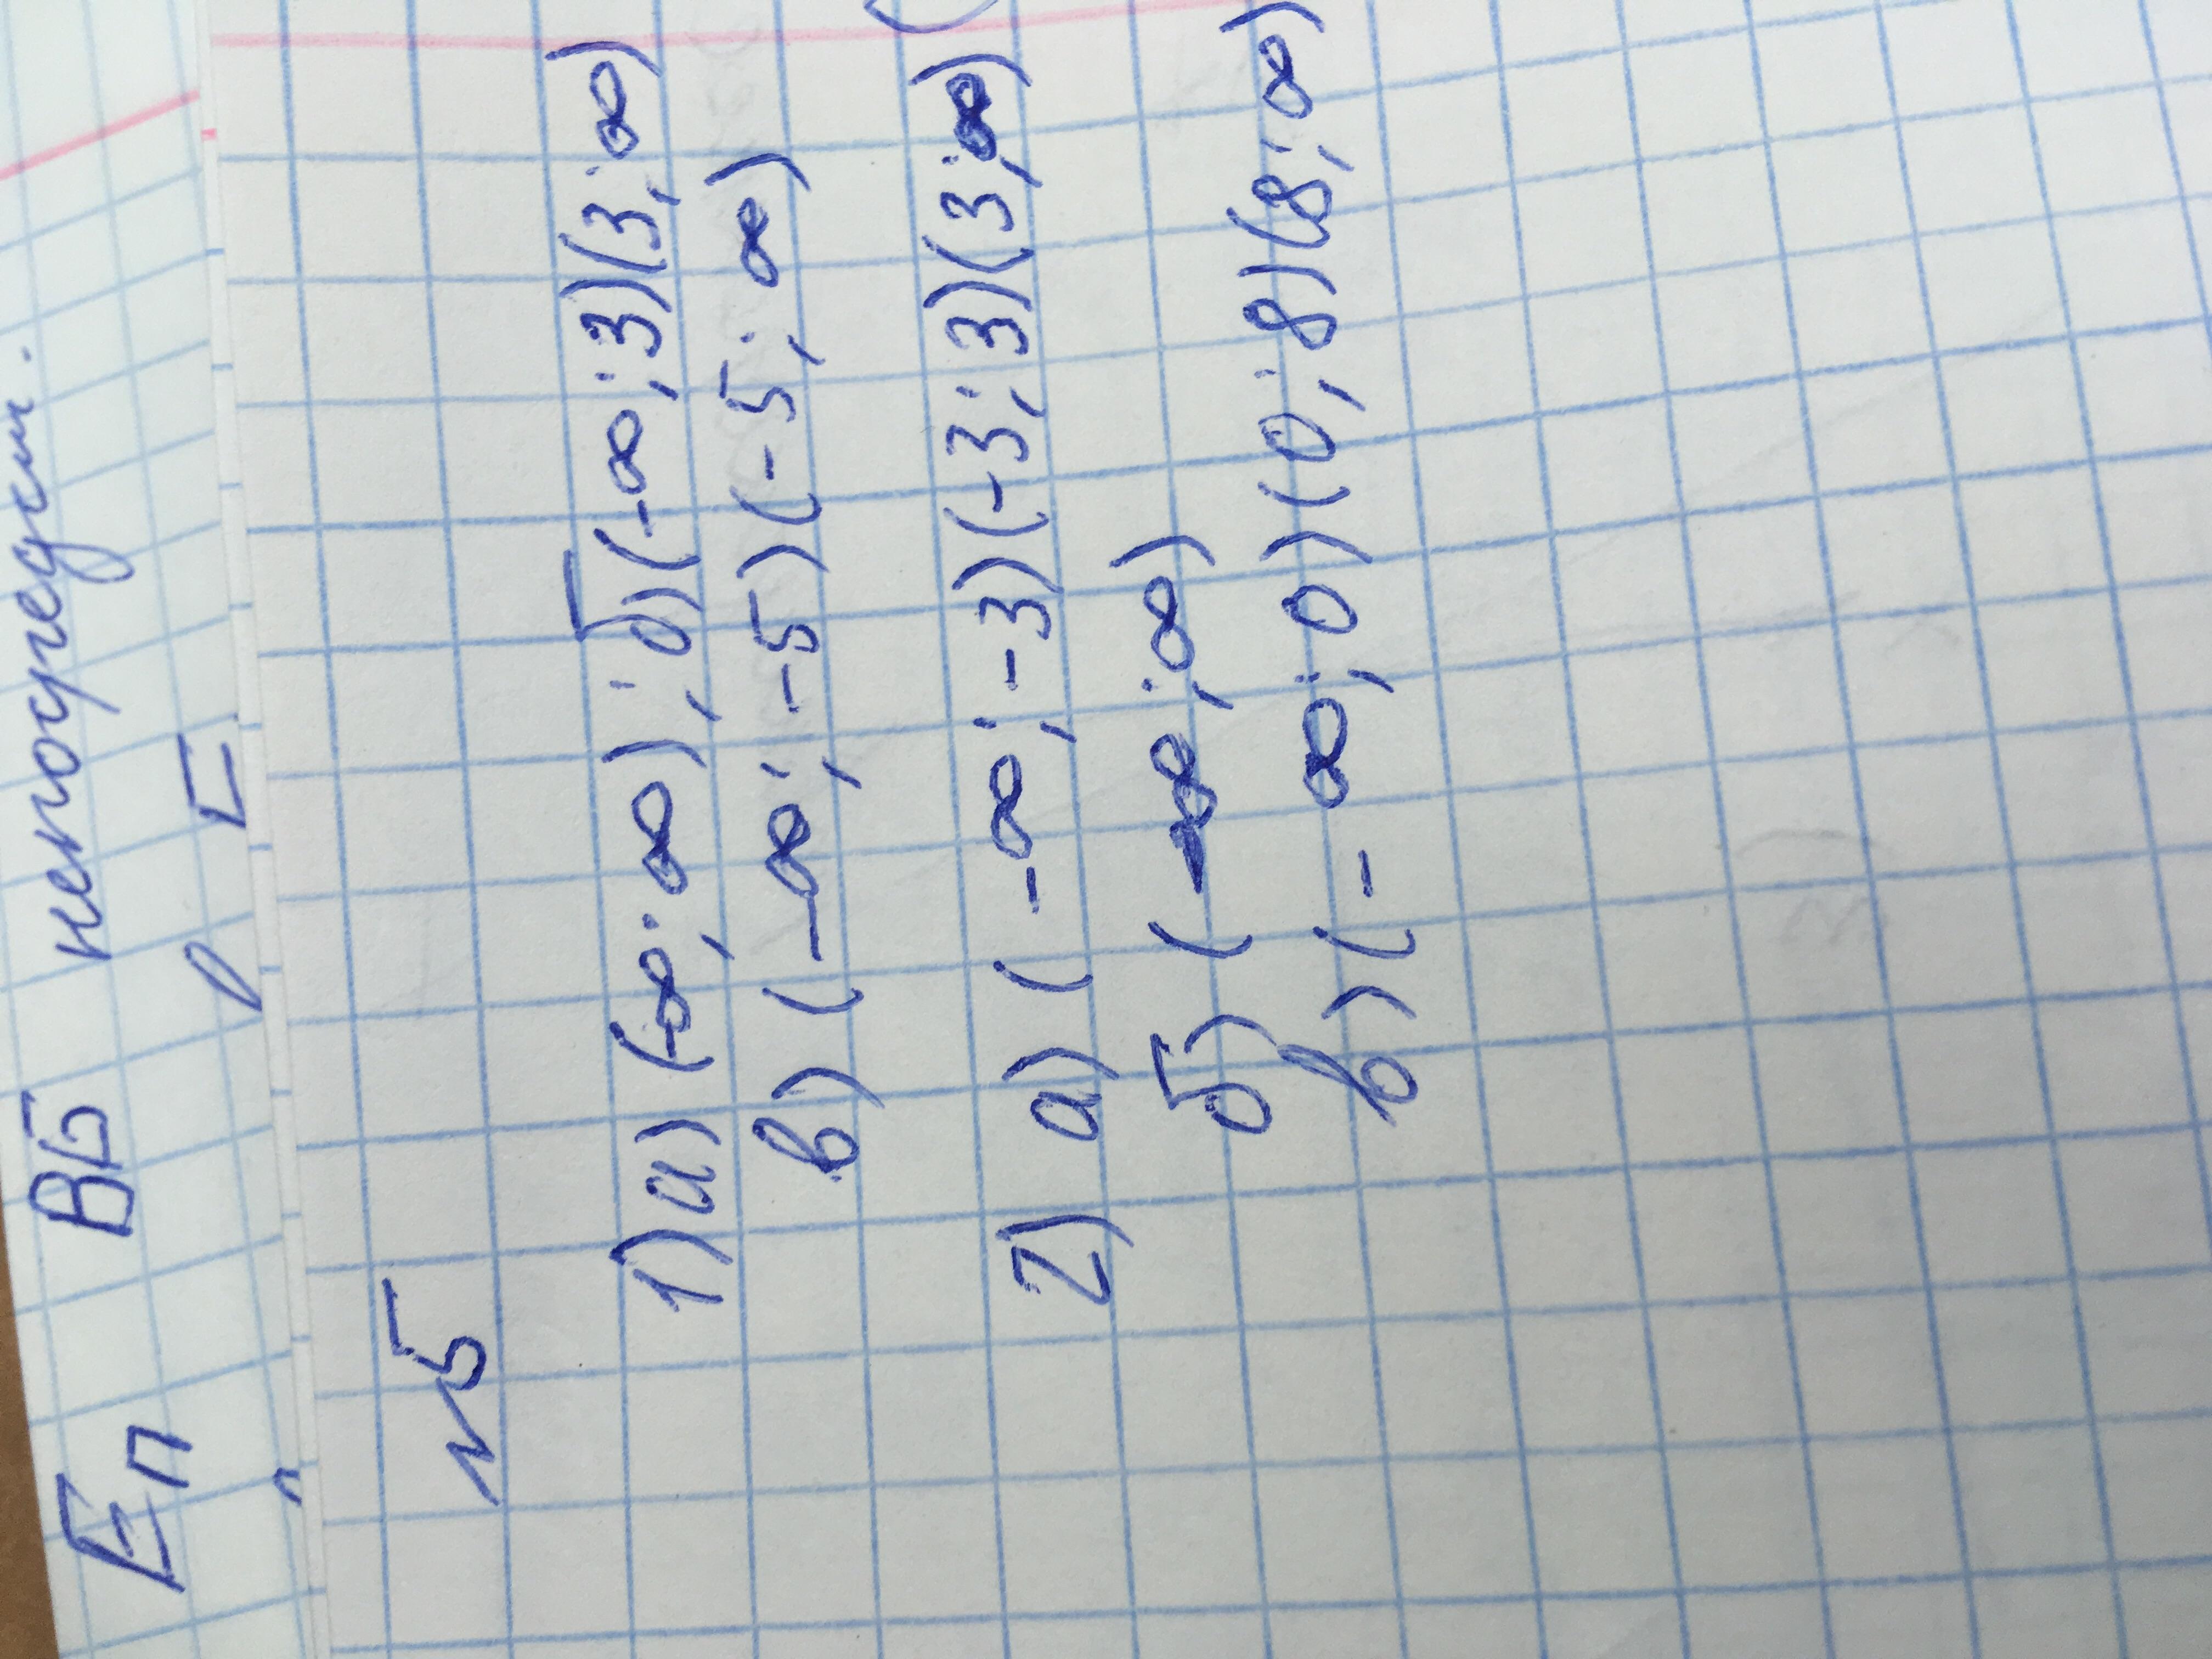 Еп ВБ неопредел.
№5
1) а) (-∞; ∞); б) (-∞; 3)(3; ∞)
в) (-∞; -5)(-5; ∞)
2) а) (-∞; -3)(-3; 3)(3; ∞)(
б) (-∞; ∞)
в) (-∞; 0)(0; 8)(8; ∞)